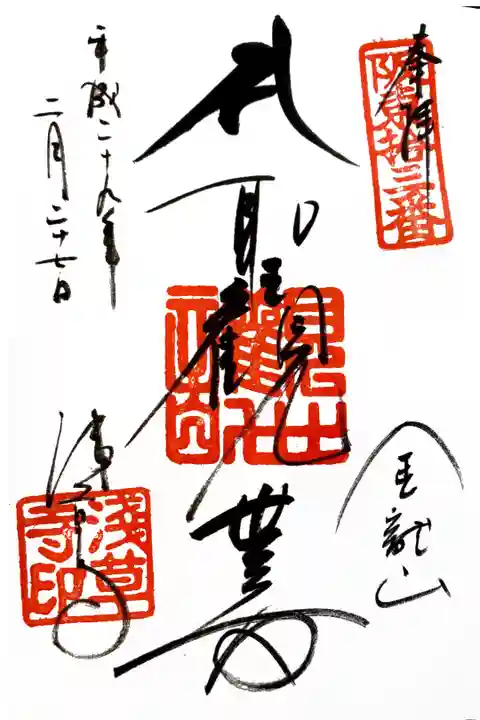 奉拝
阪東拾三番
聖観世音
金龍山
平成二十九年
二月二十七日
浅草寺
浅草寺印